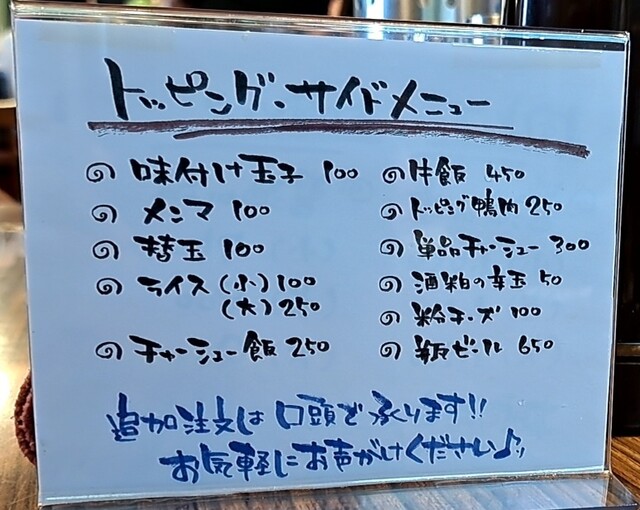 トッピング・サイドメニュー
味付け玉子 100
メンマ 100
替玉 100
ライス(小)100
(大)250
チャーシュー飯 250
丼飯 450
トッピング鴨肉 250
単品チャーシュー 300
酒粕の辛玉 50
粉チーズ 100
瓶ビール 650
追加注文は口頭で承ります!!
お気軽にお声がけください♪